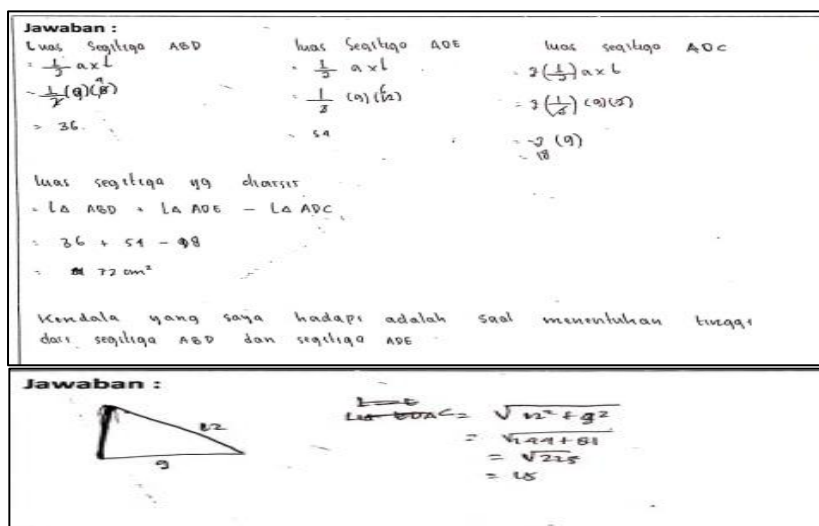 Jawaban :
Luas Segitiga ABD
= 1/2 a x t
= 1/2 (9)(8)
= 36
luas Segitiga ADE
= 1/2 a x t
= 1/2 (9)(12)
= 54
luas segitiga ADC
= 2(1/2) a x t
= 2(1/2) (9)(2)
= 2 (9)
= 18
luas segitiga yg diarsir
= LΔ ABD + LΔ ADE - LΔ ADC
= 36 + 54 - 18
= 72 cm²
Kendala yang saya hadapi adalah saat menentukan tinggi
dari segitiga ABD dan segitiga ADE
Jawaban :
12
9
= √12² + 9²
= √144 + 81
= √225
= 15